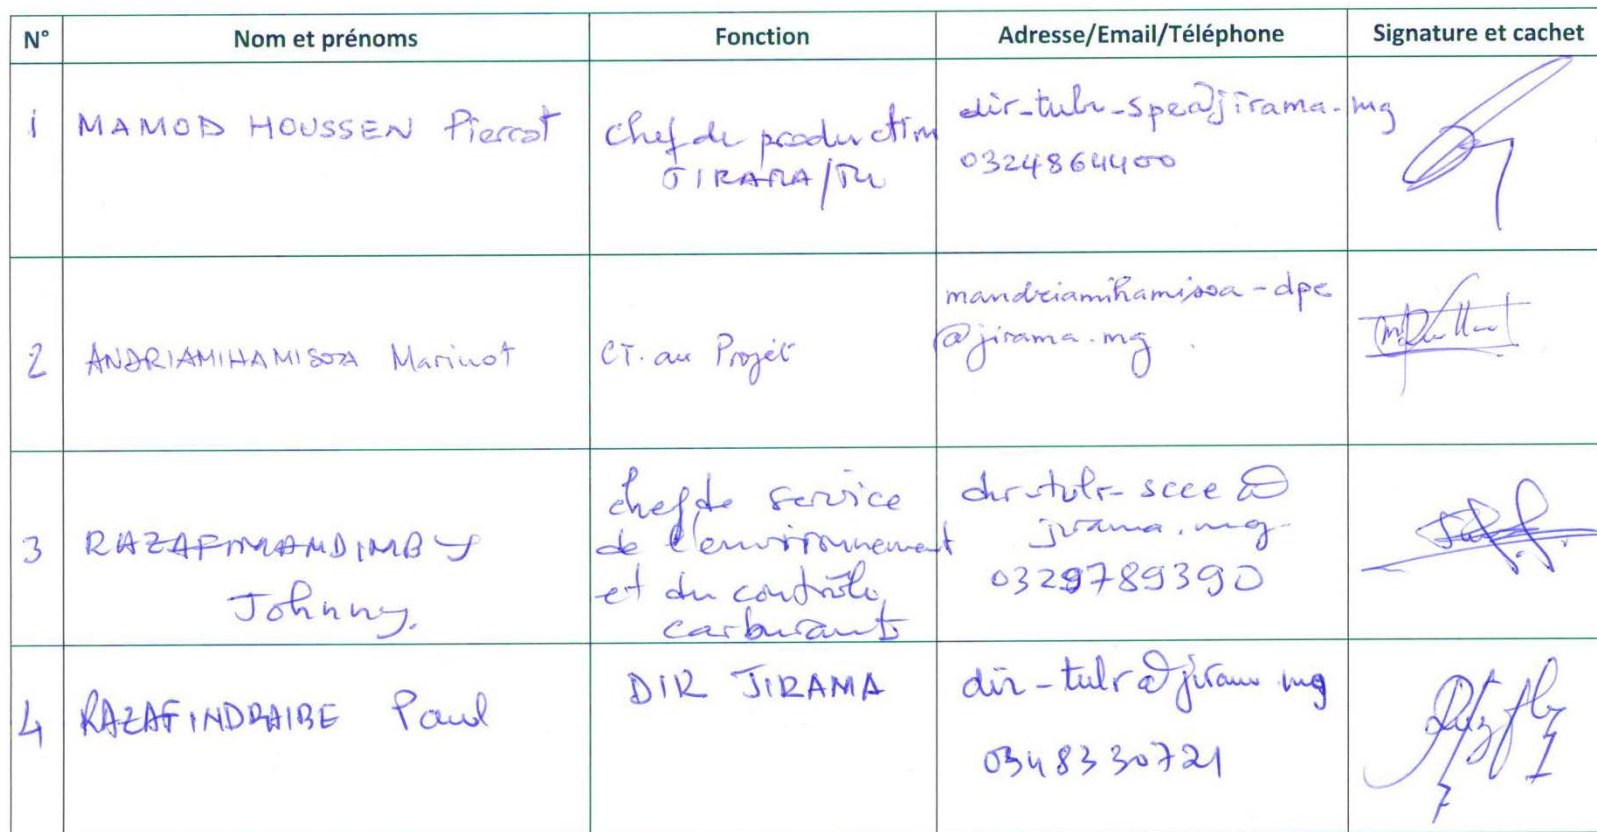 N° Nom et prénoms Fonction Adresse/Email/Téléphone Signature et cachet
1 MAMOD HOUSSEN Pierrot
chef de production
JIRAMA/TU
dir-tulr-spe@jirama.mg
0324864400
2 ANDRIAMIHAMISOA Marinot
CT. au Projet
mandriamihamisoa-dpe
@jirama.mg
3 RAZAFIMANDIMBY
Johnny.
chef de service
de l'environnement
et du contrôle
carburants
dir-tulr-scce@
jirama.mg
0329789390
4 RAZAFINDRAIBE Paul
DIR JIRAMA
dir-tulr@jirama.mg
0348330721